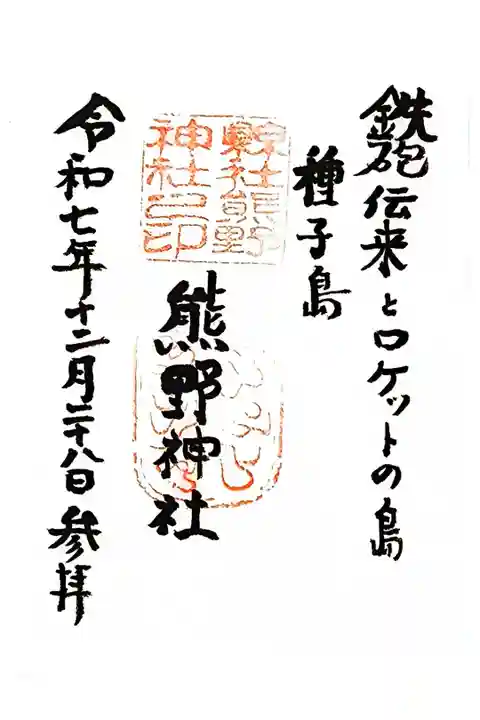 鉄砲伝来とロケットの島
種子島
縣社熊野
神社之印
熊野神社
令和七年十二月二十八日参拝